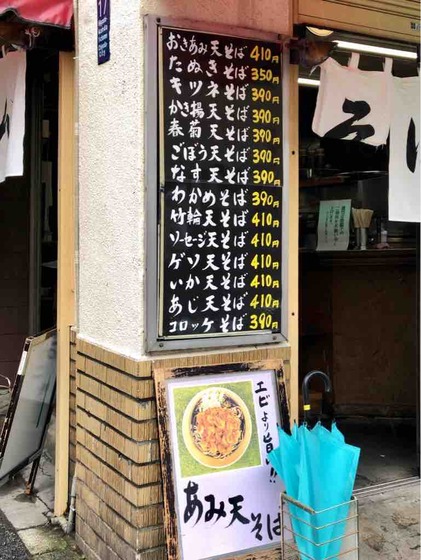 おきあみ天そば 410円
たぬきそば 350円
キツネそば 390円
かき揚天そば 390円
春菊天そば 390円
ごぼう天そば 390円
なす天そば 390円
わかめそば 390円
竹輪天そば 410円
ソーセージ天そば 410円
ゲソ天そば 410円
いか天そば 410円
あじ天そば 410円
コロッケそば 390円
エビより旨い!!
あみ天そば
17